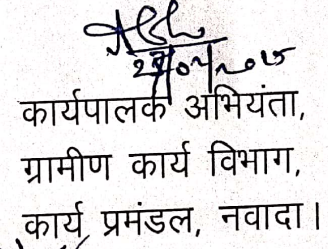 कार्यपालक अभियंता,
ग्रामीण कार्य विभाग,
कार्य प्रमंडल, नवादा।